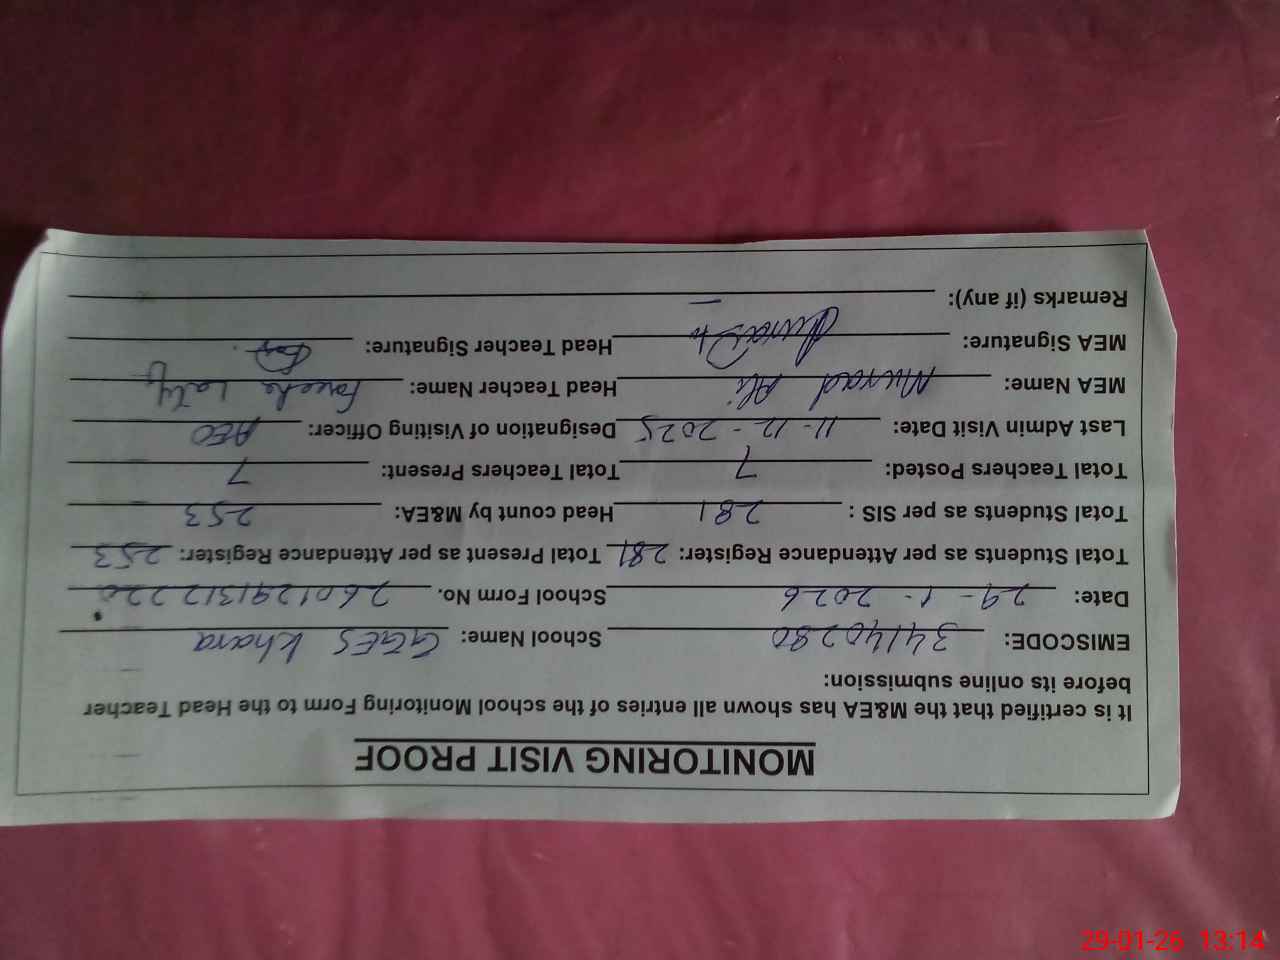 MONITORING VISIT PROOF
It is certified that the M&EA has shown all entries of the school Monitoring Form to the Head Teacher
before its online submission:
EMISCODE: 34140280 School Name: GGES Khara
Date: 29-1-2026 School Form No. 2601291312220
Total Students as per Attendance Register: 281 Total Present as per Attendance Register: 253
Total Students as per SIS : 281 Head count by M&EA: 253
Total Teachers Posted: 7 Total Teachers Present: 7
Last Admin Visit Date: 11-12-2025 Designation of Visiting Officer: AEO
MEA Name: Murad Ali Head Teacher Name:
MEA Signature: Head Teacher Signature:
Remarks (if any): —
29-01-26 13:14